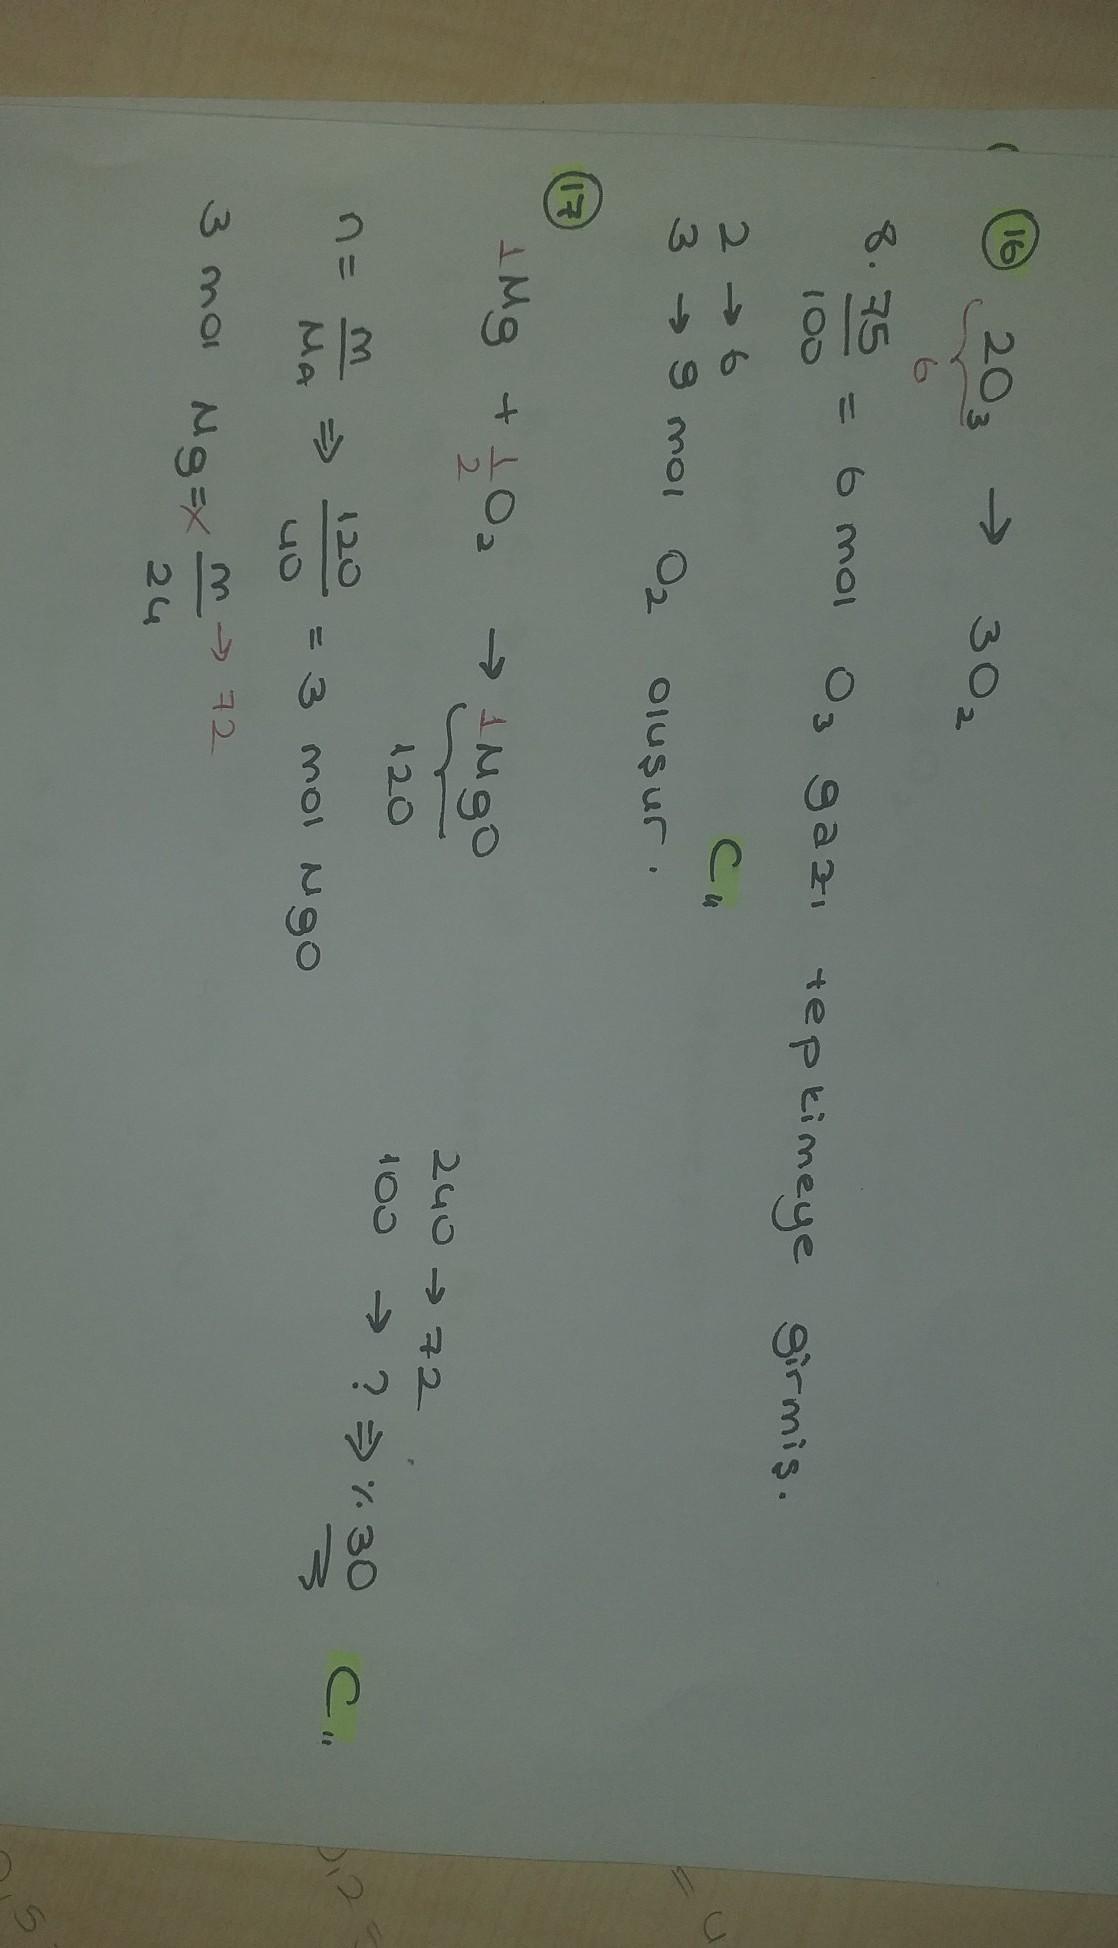 16
2O₃ → 3O₂
6
8. 75/100 = 6 mol O₃ gazı tepkimeye girmiş.
2 → 6
3 → 9 mol O₂ oluşur.
C"
17
1Mg + 1/2 O₂ → 1MgO
120
n = m/MA ⇒ 120/40 = 3 mol MgO
3 mol Mg = m/24 → 72
240 → 72
100 → ? ⇒ %30
C"